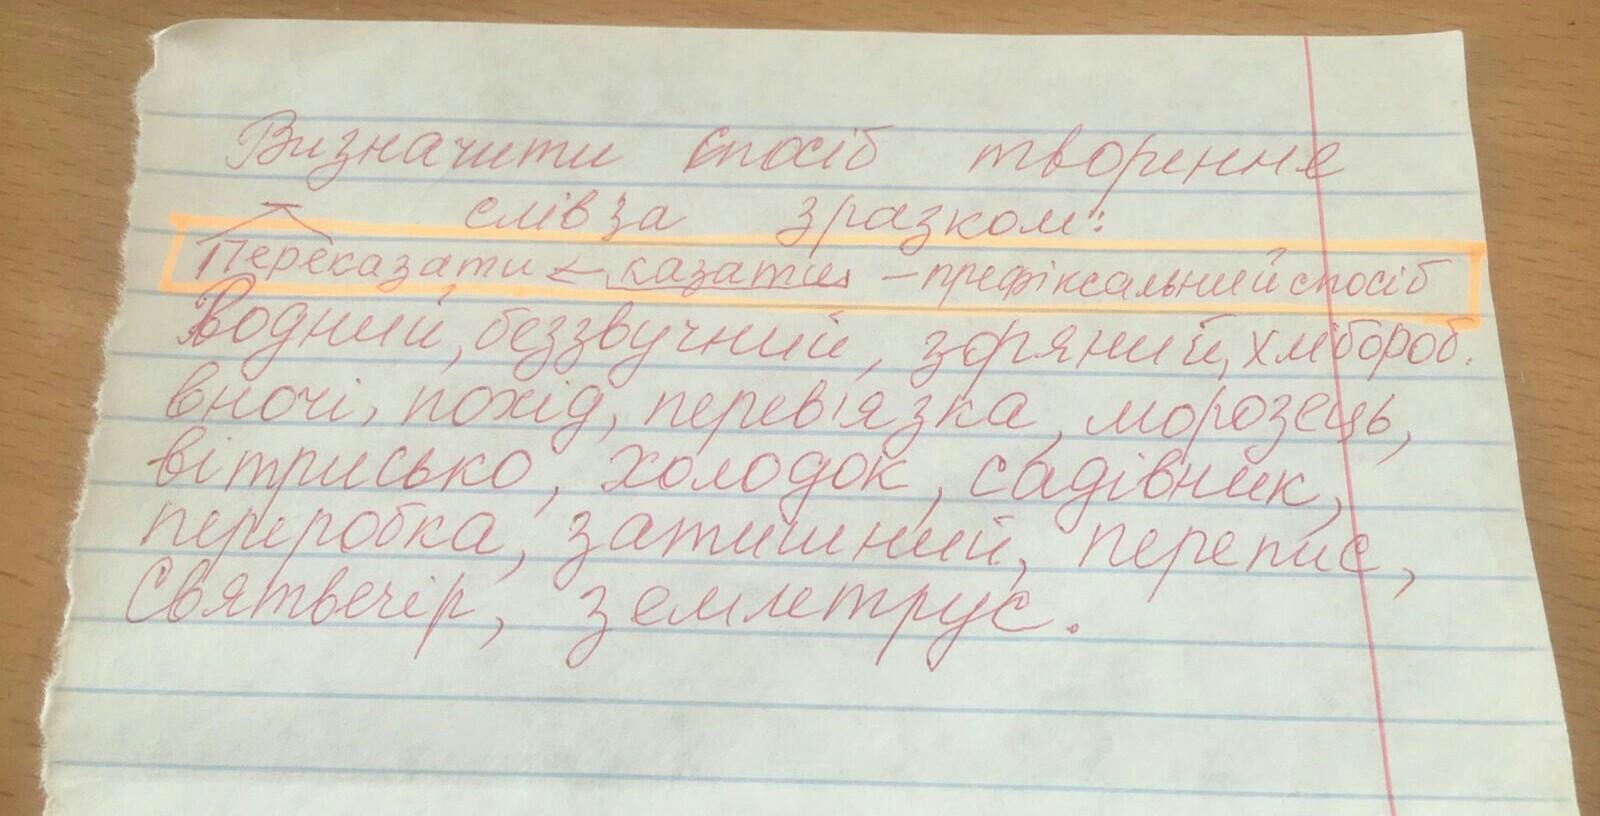 Визначити спосіб творення
слів за зразком:
Переказати ← казати – префіксальний спосіб
Водний, беззвучний, зоряний, хлібороб,
вночі, похід, перев'язка, морозець,
вітрисько, холодок, садівник,
переробка, затишний, перепис,
Святвечір, землетрус.